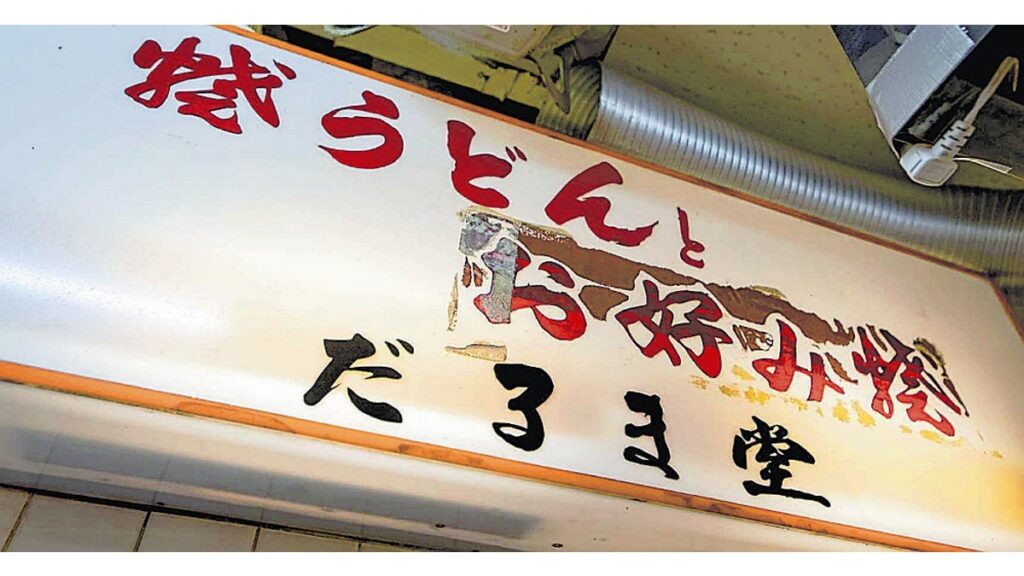 焼うどんと
お好み焼
だるま堂